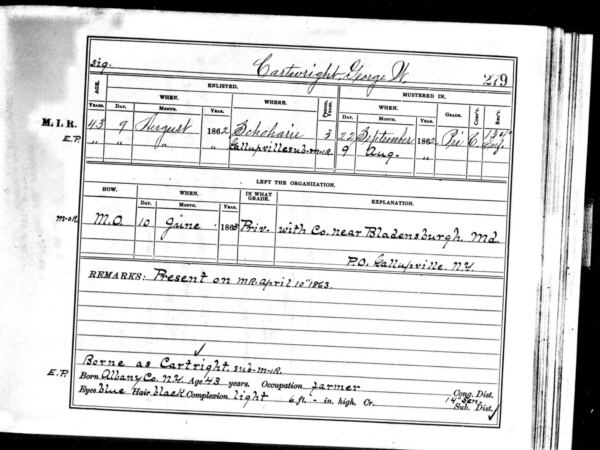 sig. Cartwright, George W. 279
AGE. ENLISTED. MUSTERED IN.
WHEN. WHERE. PERIOD, YEARS. WHEN. GRADE. COMP'Y. REG'T.
YEARS. DAY. MONTH. YEAR. DAY. MONTH. YEAR.
M.I.R. 43 9 August 1862 Schoharie 3 22 September 1862 Pri C 134th
E.P. " " " " Gallupville sub-m-R. 9 Aug. " Inf
LEFT THE ORGANIZATION.
HOW. WHEN. IN WHAT GRADE. EXPLANATION.
DAY. MONTH. YEAR.
m-o-R. M.O. 10 June 1865 Priv. with Co. near Bladensburgh, Md.
P.O. Gallupville. N.Y.
REMARKS: Present on m.R. april 10" 1863.
Borne as Cartright, sub-m-R.
E.P. Born Albany Co. N.Y. Age 43 years. Occupation farmer Cong. Dist.
Eyes blue Hair black Complexion light 6 ft. - in. high. Cr. 14" Sen. Sub. Dist.